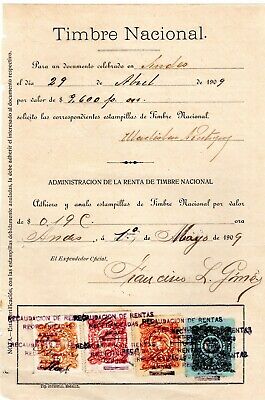 Timbre Nacional.
Para un documento celebrado en Andes
el día 29 de Abril de 1909
por valor de $ 9.600 p. oro.
solicito las correspondientes estampillas de Timbre Nacional.
ADMINISTRACION DE LA RENTA DE TIMBRE NACIONAL
Adhiero y anulo estampillas de Timbre Nacional por valor
de $ 0.19 C. oro
Andes, á 1.º de Mayo de 1909
El Expendedor Oficial,
Francisco L.
NOTA.—Esta certificación, con las estampillas debidamente anuladas, la debe adherir el interesado al documento respectivo.
RECAUDACION DE RENTAS
RECAUDACION DE RENTAS